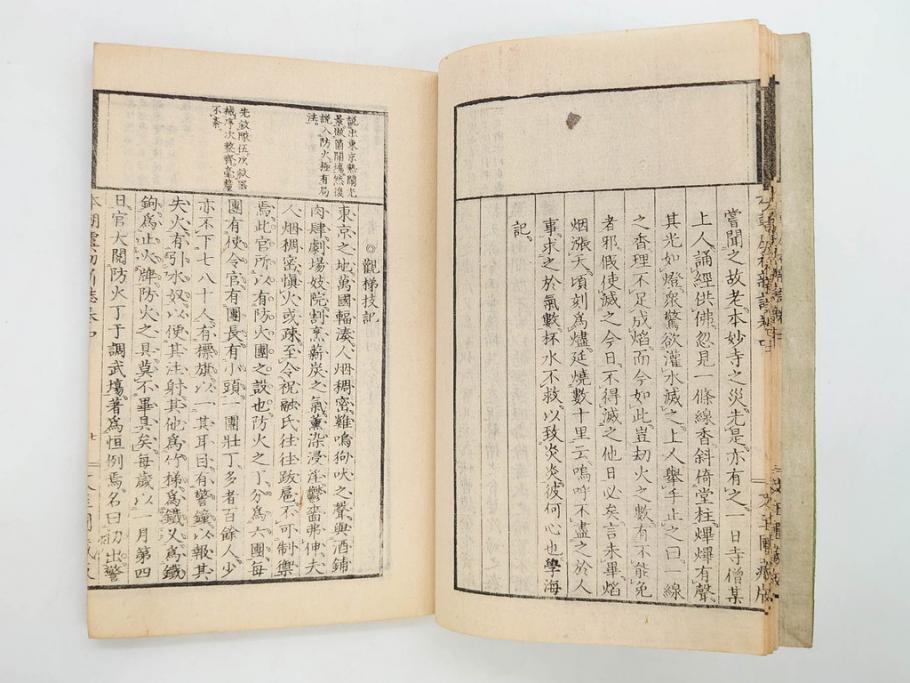 嘗聞之故老本妙寺之災先是亦有之一日寺僧某
上人誦經供佛忽見一條線香斜倚堂柱燁燁有聲
其光如燈衆驚欲灌水滅之上人擧手止之曰一線
之香理不足成焰而今如此豈劫火之數有不能免
者邪假使滅之今日不得滅之他日必矣言未畢焰
烟漲天頃刻爲燼延燒數十里云嗚呼不盡之於人
事求之於氣數杯水不救以致炎炎彼何心也學海
記
說出東京熱鬧光
景做箇開場然後
說入防火極有局
法
先敘隊伍次敘器
械序次整齊毫釐
不紊
◎觀梯技記
東京之地萬國輻湊人烟稠密雞鳴狗吠之聲與酒鋪
肉肆劇場妓院割烹薪炭之氣薰染浸淫鬱嗇弗伸夫
人烟稠密愼火或疎至令祝融氏往往跋扈不可制禦
焉此官所以有防火團之設也防火之丁分爲六團每
團有使令官有團長有小頭一團壯丁多者百餘人少
亦不下七八十人有標旗以一其耳目有警鐘以報其
失火有引水奴以便其注射其他爲竹梯爲鐵叉爲鐵
鉤爲止火牌防火之具莫不畢具矣每歲以一月第四
日官大閱防火丁于調武場著爲恒例焉名曰初出警